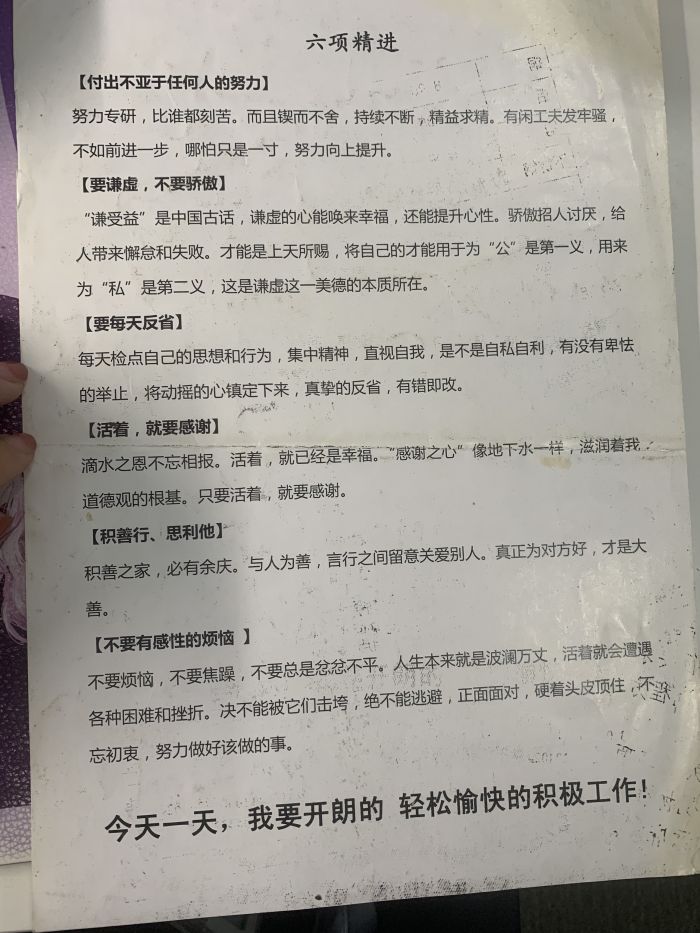 六项精进
【付出不亚于任何人的努力】
努力专研，比谁都刻苦。而且锲而不舍，持续不断，精益求精。有闲工夫发牢骚，
不如前进一步，哪怕只是一寸，努力向上提升。
【要谦虚，不要骄傲】
“谦受益”是中国古话，谦虚的心能唤来幸福，还能提升心性。骄傲招人讨厌，给
人带来懈怠和失败。才能是上天所赐，将自己的才能用于为“公”是第一义，用来
为“私”是第二义，这是谦虚这一美德的本质所在。
【要每天反省】
每天检点自己的思想和行为，集中精神，直视自我，是不是自私自利，有没有卑怯
的举止，将动摇的心镇定下来，真挚的反省，有错即改。
【活着，就要感谢】
滴水之恩不忘相报。活着，就已经是幸福。“感谢之心”像地下水一样，滋润着我
道德观的根基。只要活着，就要感谢。
【积善行、思利他】
积善之家，必有余庆。与人为善，言行之间留意关爱别人。真正为对方好，才是大
善。
【不要有感性的烦恼 】
不要烦恼，不要焦躁，不要总是忿忿不平。人生本来就是波澜万丈，活着就会遭遇
各种困难和挫折。决不能被它们击垮，绝不能逃避，正面面对，硬着头皮顶住，不
忘初衷，努力做好该做的事。
今天一天，我要开朗的 轻松愉快的积极工作！